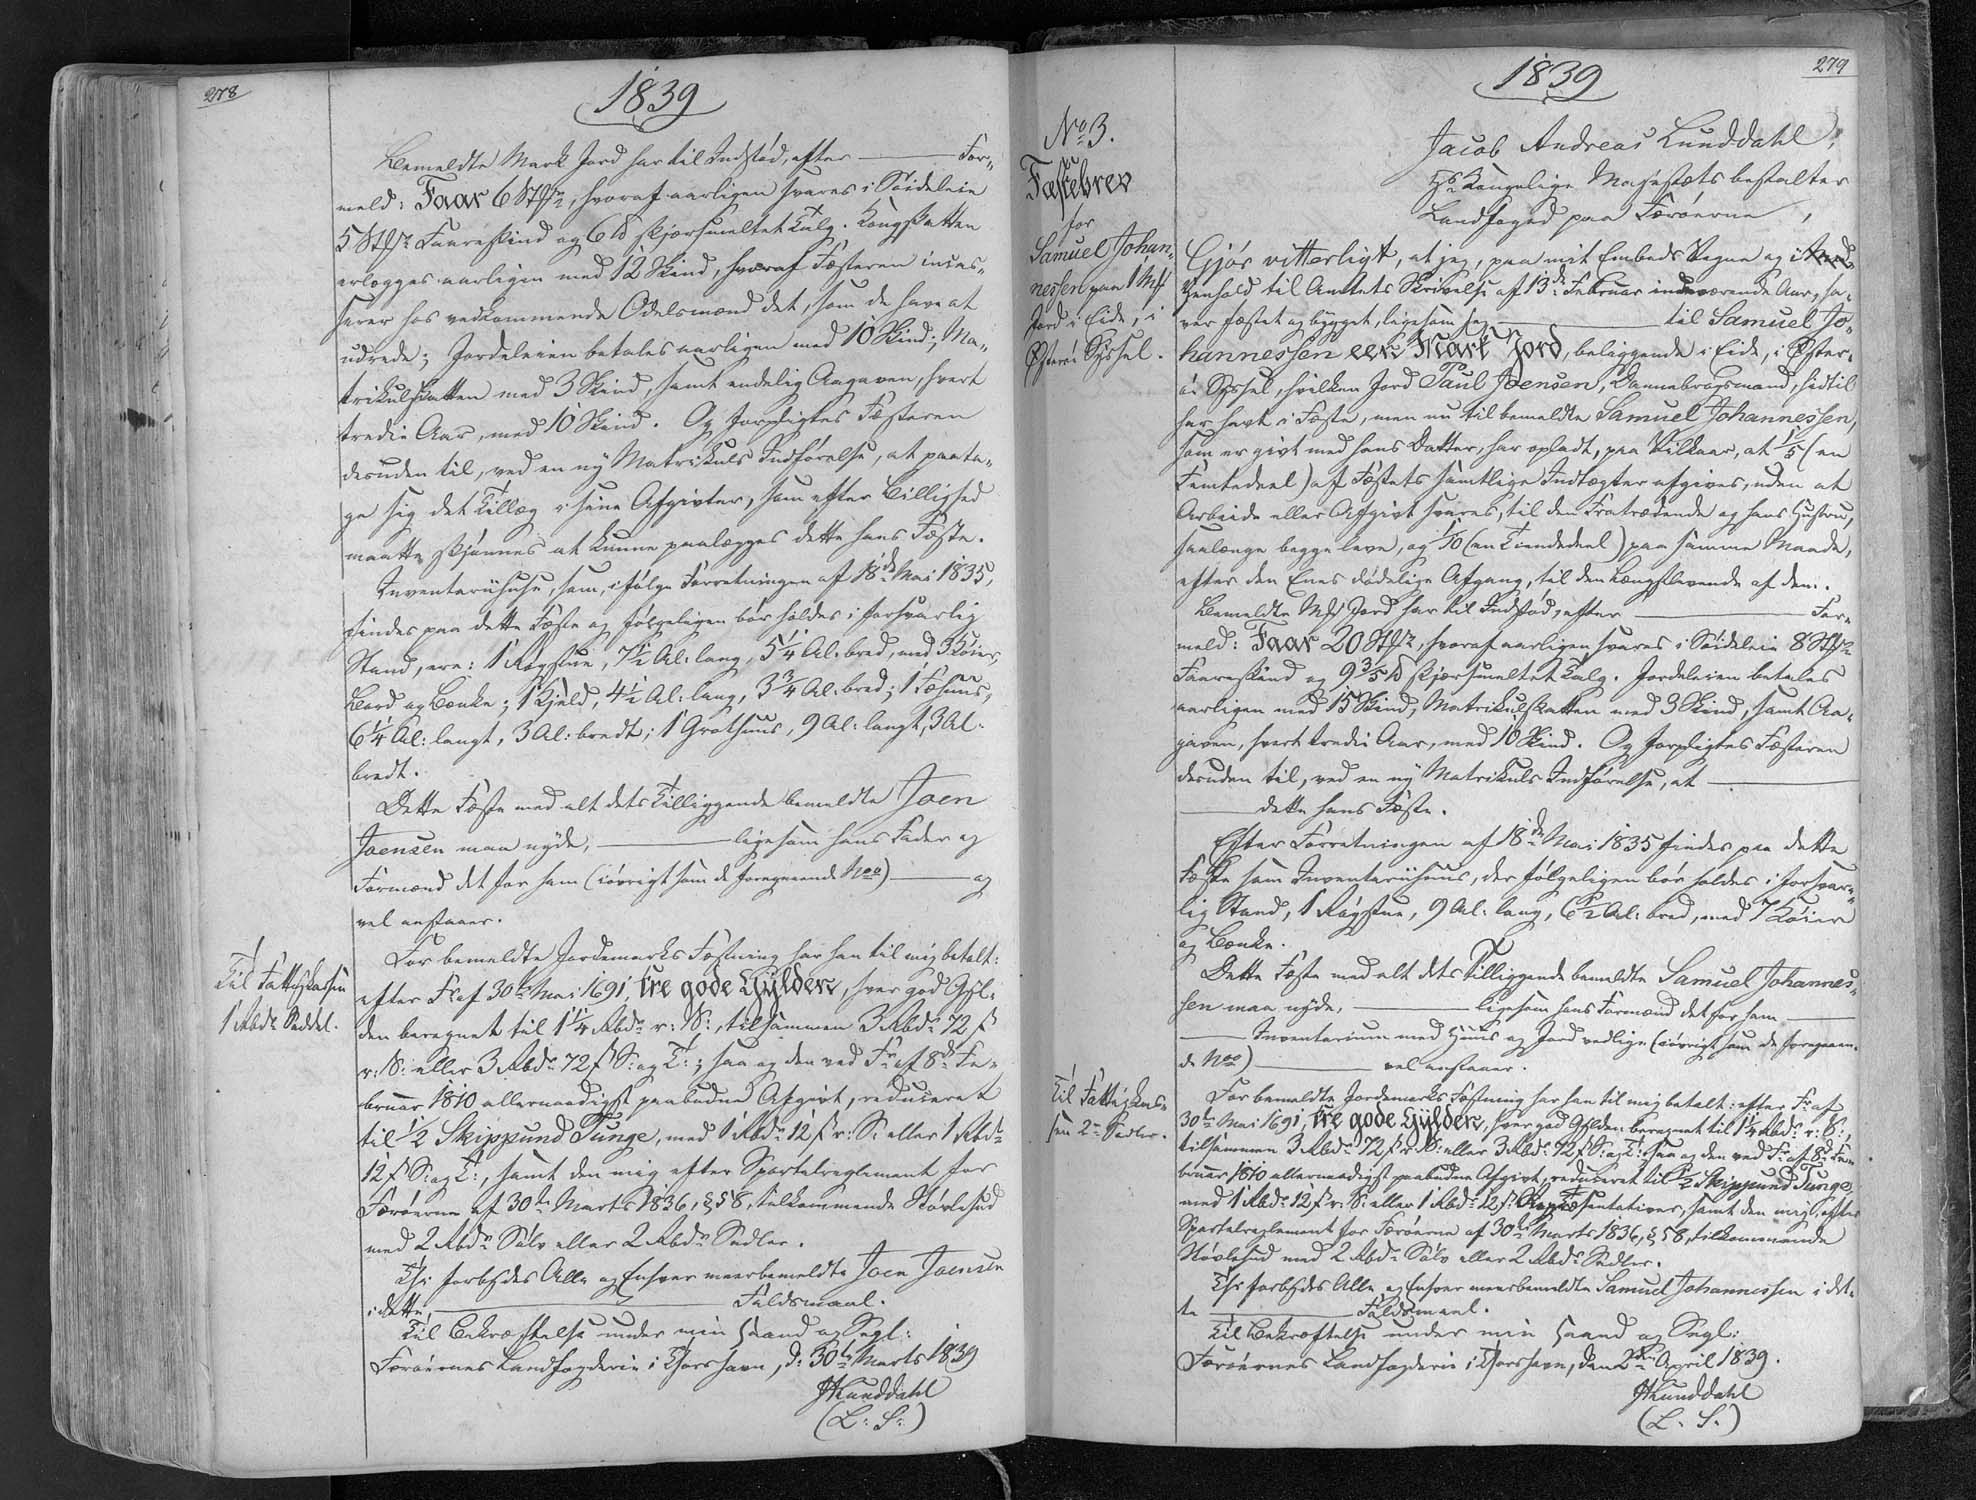 278
1839
Bemeldte Mark Jord har til Indstød, efter ——— For-
meld: Faar 6 Stkr, hvoraf aarligen svares i Söideleie
5 Stkr Faareskind og 6 ℔ skjærsmeltet Talg. Kongskatten
erlægges aarligen med 12 Skind, hvoraf Fæsteren incas-
serer hos vedkommende Odelsmænd det, som de have at
udrede; Jordeleien betales aarligen med 10 Skind; Ma-
trikulskatten med 3 Skind, samt endelig Aagaven, hvert
tredie Aar, med 10 Skind. Og forpligtes Fæsteren
desuden til, ved en ny Matrikuls Indførelse, at paata-
ge sig det Tillæg i sine Afgivter, som efter Billighed
maatte skjønnes at kunne paalægges dette hans Fæste.
Inventariihuse, som, ifølge Forretningen af 18de Mai 1835,
findes paa dette Fæste og følgeligen bør holdes i forsvarlig
Stand, ere: 1 Røgstue, 7½ Al: lang, 5¼ Al: bred, med 3 Køier,
Bord og Bænke; 1 Hjeld, 4½ Al: lang, 3¾ Al: bred; 1 Fæhuus,
6¼ Al: langt, 3 Al: bredt; 1 Grothuus, 9 Al: langt, 3 Al:
bredt.
Dette Fæste med alt dets Tilliggende bemeldte Joen
Joensen maa nyde, ——— ligesom hans Fader og
Formænd det før ham (iøvrigt som de foregaaende Noo) ——— og
vel anstaaer.
Til Fattigkassen
1 Rbdr Seddel.
For bemeldte Jordemarks Fæstning har han til mig betalt:
efter Fr af 30te Mai 1691, tre gode Gylden, hver god Gyl-
den beregnet til 1¼ Rbdr r: S:, tilsammen 3 Rbdr 72 ß
r: S: eller 3 Rbdr 72 ß S: og T:; saa og den ved Fr af 8de Fe-
bruar 1810 allernaadigst paabudne Afgivt, reduceret
til ½ Skippund Tunge, med 1 Rbdr 12 ß r: S: eller 1 Rbdr
12 ß S: og T:, samt den mig efter Sportelreglement for
Færøerne af 30te Marts 1836, § 58, tilkommende Støvlesud
med 2 Rbdr Sølv eller 2 Rbdr Sedler.
Thi forbydes Alle og Enhver meerbemeldte Joen Joensen
i dette, ——— Faldsmaal.
Til Bekræftelse under min Haand og Segl:
Færøernes Landfogderie i Thorshavn, d: 30te Marts 1839
JALunddahl
(L: S:)
279
1839
No 3.
Fæstebrev
for
Samuel Johan-
nessen paa 1 Mk
Jord i Eide, i
Østerøe Syssel.
Jacob Andreas Lunddahl,
Hs Kongelige Majestæts bestalter
Landfoged paa Færøerne,
Gjør vitterligt, at jeg, paa mit Embeds Vegne og i
Henhold til Amtets Skrivelse af 13de Februar indeværende Aar, ha-
ver fæstet og bygget, ligesom jeg ——— til Samuel Jo-
hannessen een Mark Jord, beliggende i Eide, i Øster-
øe Syssel, hvilken Jord Paul Joensen, Dannebrogsmand, hidtil
har havt i Fæste, men nu til bemeldte Samuel Johannessen,
som er givt med hans Datter, har opladt, paa Vilkaar, at 1/5 (en
Femtedeel) af Fæstets samtlige Indtægter afgives, uden at
Arbeide eller Afgivt svares, til den Fratrædende og hans Hustru,
saalænge begge leve, og 1/10 (en Tiendedeel) paa samme Maade,
efter den Enes dødelige Afgang, til den Længstlevende af dem.
Bemeldte Mk Jord har til Indstød, efter ——— For-
meld: Faar 20 Stkr, hvoraf aarligen svares i Söideleie 8 Stkr
Faareskind og 9 3/5 ℔ skjærsmeltet Talg. Jordeleien betales
aarligen med 15 Skind, Matrikulskatten med 3 Skind, samt Aa-
gaven, hvert tredie Aar, med 10 Skind. Og forpligtes Fæsteren
desuden til, ved en ny Matrikuls Indførelse, at ———
——— dette hans Fæste.
Efter Forretningen af 18de Mai 1835 findes paa dette
Fæste som Inventariihuus, der følgeligen bør holdes i forsvar-
lig Stand, 1 Røgstue, 9 Al: lang, 6½ Al: bred, med 7 Køier
og Bænke.
Dette Fæste med alt dets Tilliggende bemeldte Samuel Johannes-
sen maa nyde, ——— ligesom hans Formænd det før ham ———
——— Inventarium med Huus og Jord vedlige (iøvrigt som de foregaaen-
de Noo) ——— vel anstaaer.
Til Fattigkas-
sen 2 r Sedler.
For bemeldte Jordemarks Fæstning har han til mig betalt: efter Fr af
30te Mai 1691, tre gode Gylden, hver god Gylden beregnet til 1¼ Rbdr r: S:,
tilsammen 3 Rbdr 72 ß r: S: eller 3 Rbdr 72 ß S: og T:; saa og den ved Fr af 8de Fe-
bruar 1810 allernaadigst paabudne Afgivt, reduceret til ½ Skippund Tunge,
med 1 Rbdr 12 ß r: S: eller 1 Rbdr 12 ß Repræsentativer, samt den mig efter
Sportelreglement for Færøerne af 30te Marts 1836, § 58, tilkommende
Støvlesud med 2 Rbdr Sølv eller 2 Rbdr Sedler.
Thi forbydes Alle og Enhver meerbemeldte Samuel Johannessen i det-
te ——— Faldsmaal.
Til Bekræftelse under min Haand og Segl:
Færøernes Landfogderie i Thorshavn, den 2den April 1839.
JALunddahl
(L: S:)